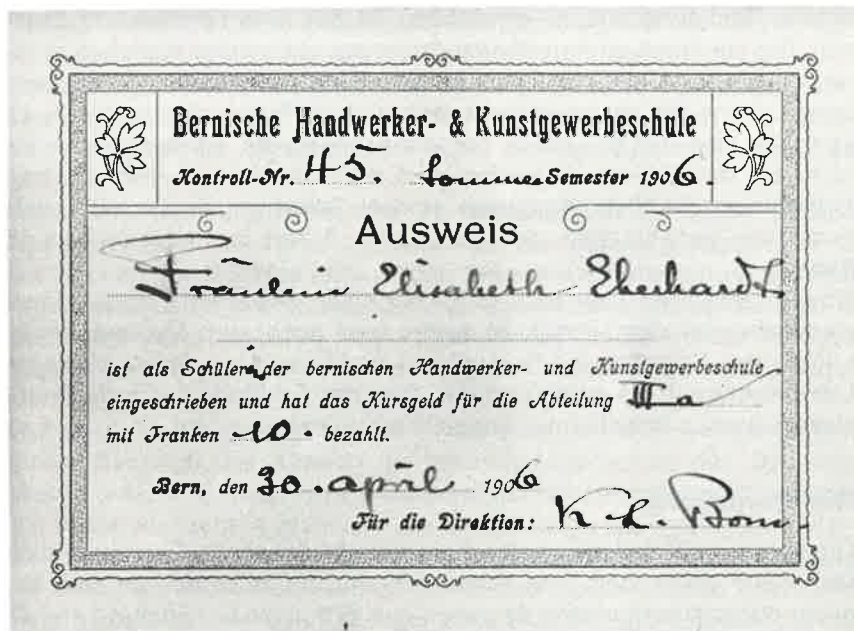 Bernische Handwerker- & Kunstgewerbeschule
Kontroll-Nr. 45. Sommer Semester 1906.
Ausweis
Fräulein Elisabeth Eberhardt
ist als Schülerin der bernischen Handwerker- und Kunstgewerbeschule
eingeschrieben und hat das Kursgeld für die Abteilung III a
mit Franken 10. bezahlt.
Bern, den 30. april 1906
Für die Direktion: